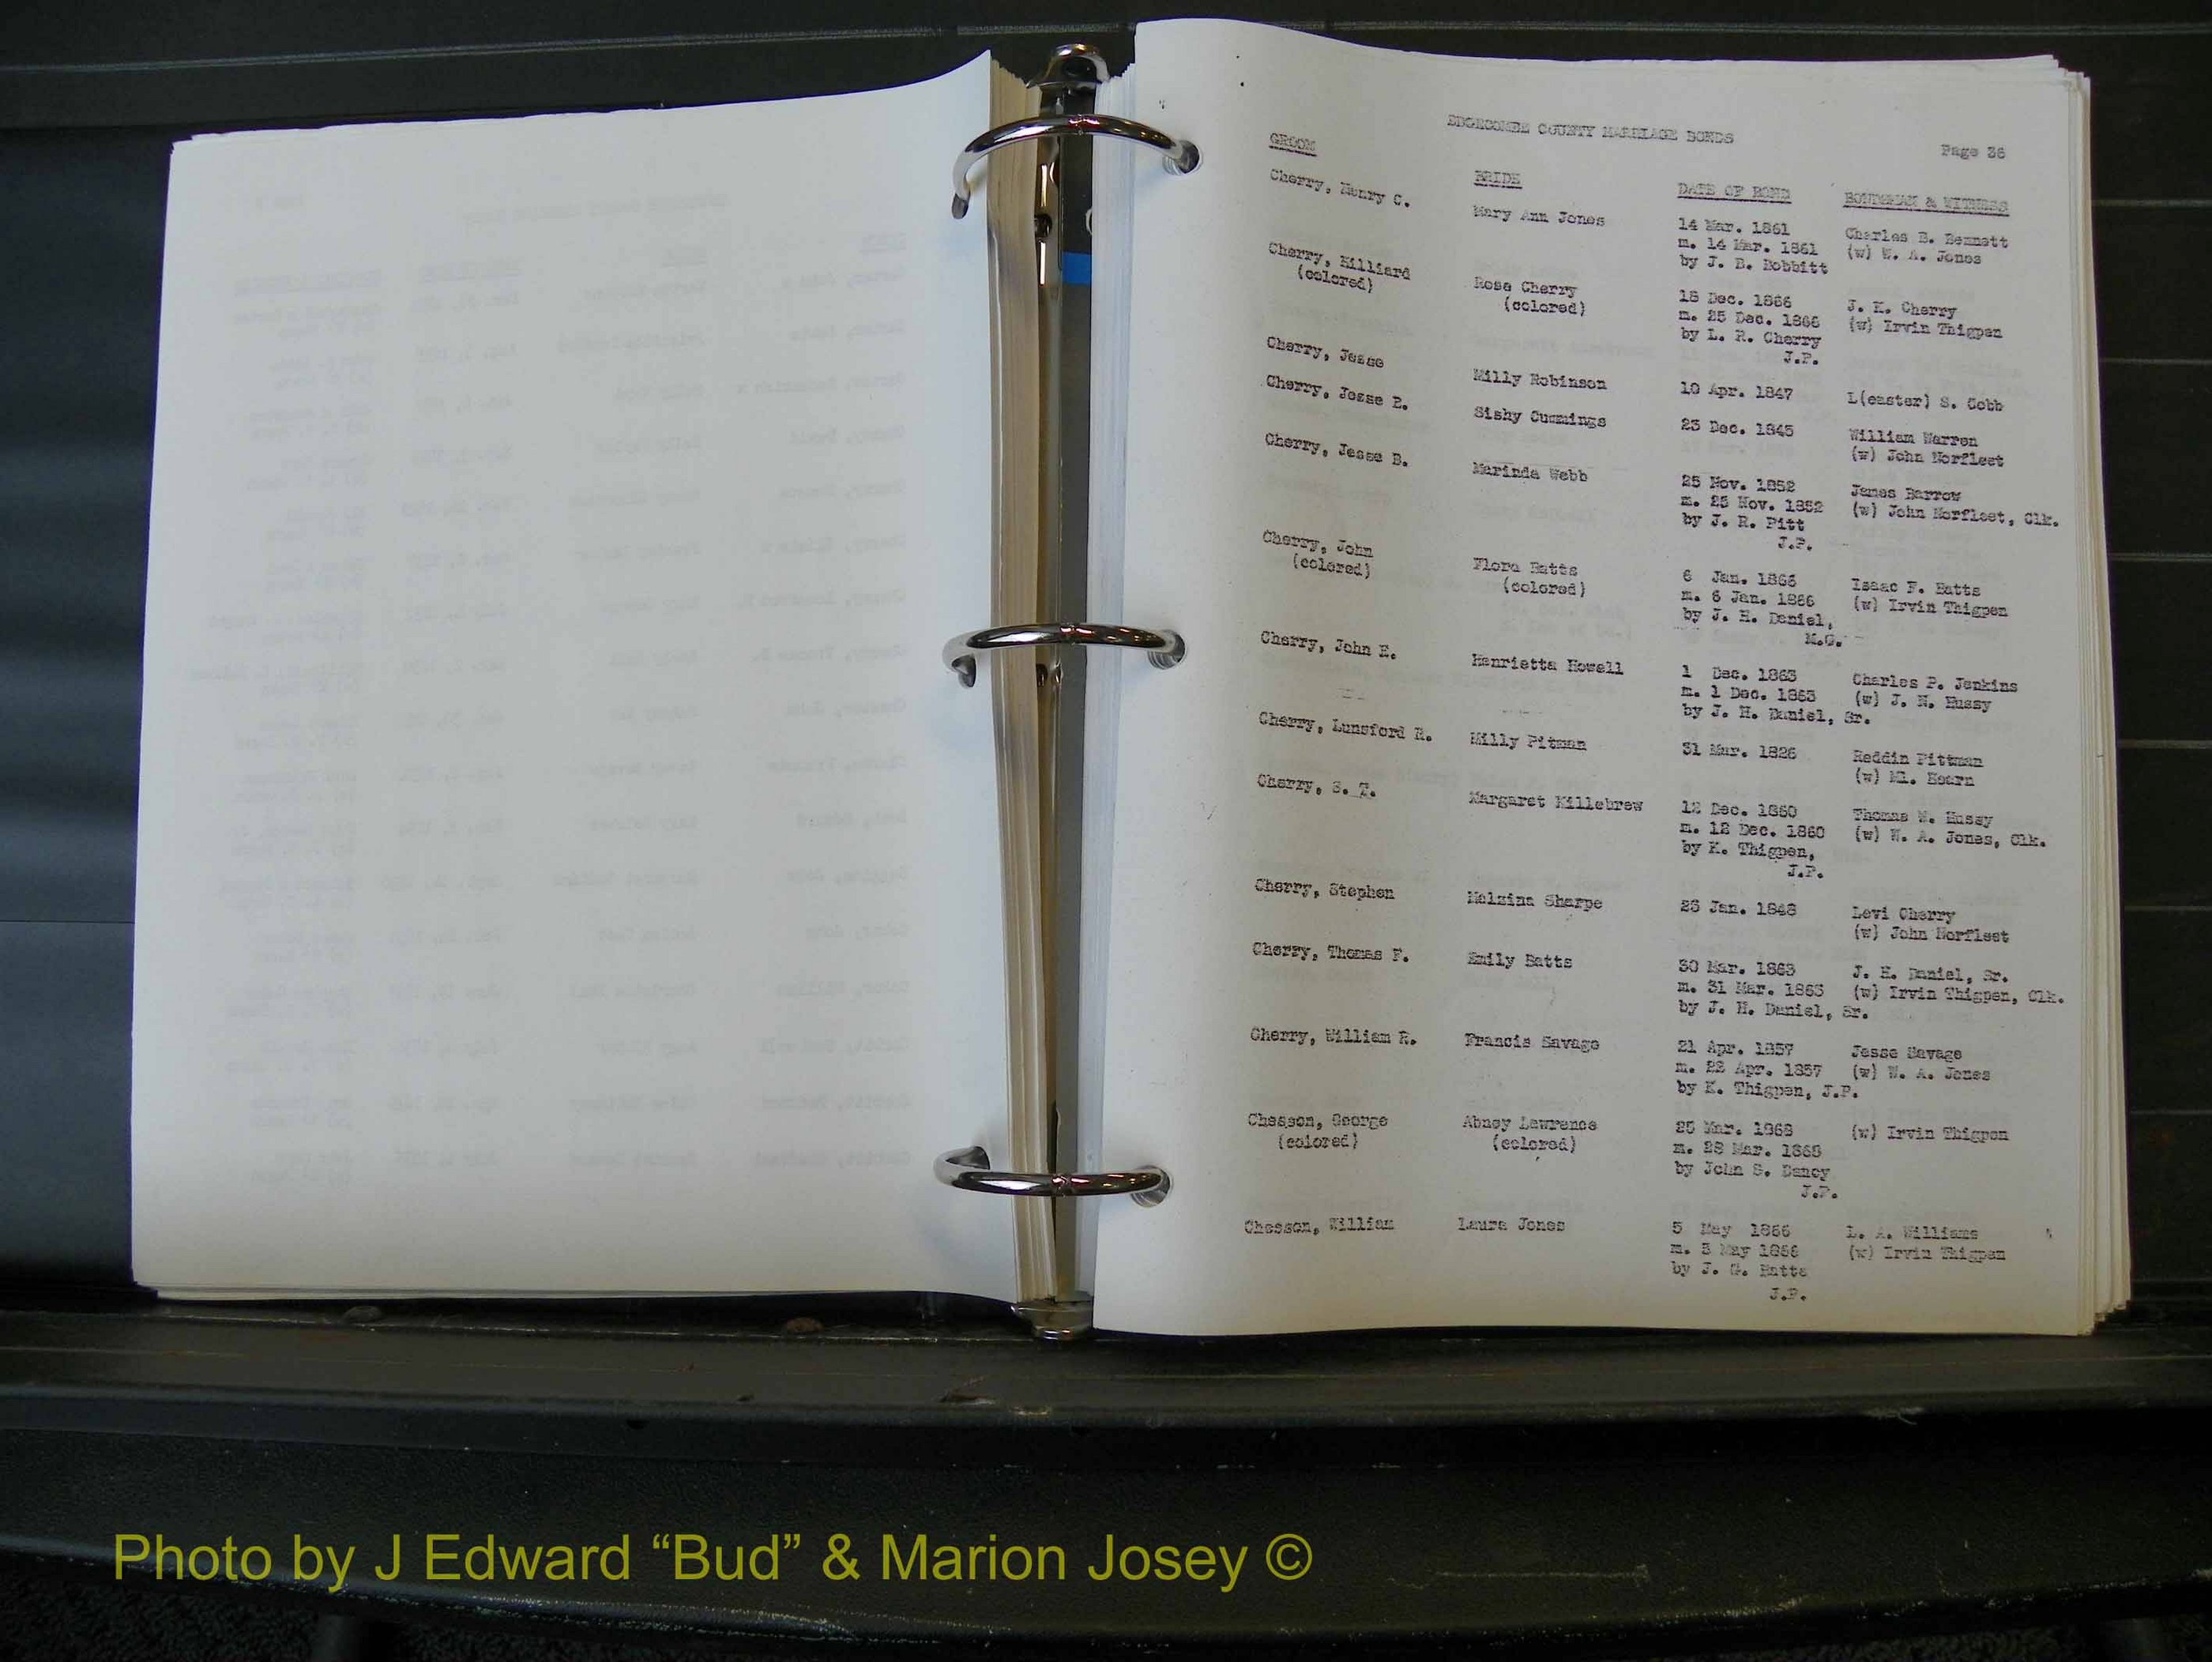 EDGECOMBE COUNTY MARRIAGE BONDS
Page 36
GROOM BRIDE DATE OF BOND BONDSMAN & WITNESS
Cherry, Henry C. Mary Ann Jones 14 Mar. 1861 Charles B. Bennett
m. 14 Mar. 1861 (w) W. A. Jones
by J. B. Bobbitt
Cherry, Hilliard Rose Cherry 18 Dec. 1866 J. K. Cherry
(colored) (colored) m. 25 Dec. 1866 (w) Irvin Thigpen
by L. R. Cherry
J.P.
Cherry, Jesse Milly Robinson 10 Apr. 1847 L(easter) S. Cobb
Cherry, Jesse B. Sishy Cummings 23 Dec. 1845 William Warren
(w) John Norfleet
Cherry, Jesse B. Marinda Webb 25 Nov. 1852 James Barrow
m. 25 Nov. 1852 (w) John Norfleet, Clk.
by J. R. Pitt
J.P.
Cherry, John Flora Batts 6 Jan. 1866 Isaac F. Batts
(colored) (colored) m. 6 Jan. 1866 (w) Irvin Thigpen
by J. H. Daniel,
M.G.
Cherry, John E. Henrietta Howell 1 Dec. 1863 Charles P. Jenkins
m. 1 Dec. 1863 (w) J. N. Hussy
by J. H. Daniel, Sr.
Cherry, Lunsford R. Milly Pitman 31 Mar. 1826 Reddin Pittman
(w) Ml. Hearn
Cherry, S. T. Margaret Killebrew 12 Dec. 1860 Thomas W. Hussy
m. 12 Dec. 1860 (w) W. A. Jones, Clk.
by K. Thigpen,
J.P.
Cherry, Stephen Malzina Sharpe 23 Jan. 1848 Levi Cherry
(w) John Norfleet
Cherry, Thomas F. Emily Batts 30 Mar. 1863 J. H. Daniel, Sr.
m. 31 Mar. 1863 (w) Irvin Thigpen, Clk.
by J. H. Daniel, Sr.
Cherry, William R. Francis Savage 21 Apr. 1857 Jesse Savage
m. 22 Apr. 1857 (w) W. A. Jones
by K. Thigpen, J.P.
Chesson, George Abney Lawrence 25 Mar. 1968 (w) Irvin Thigpen
(colored) (colored) m. 28 Mar. 1868
by John S. Dancy
J.P.
Chesson, William Laura Jones 5 May 1866 L. A. Williams
m. 5 May 1866 (w) Irvin Thigpen
by J. G. Batts
J.P.
Photo by J Edward “Bud” & Marion Josey ©